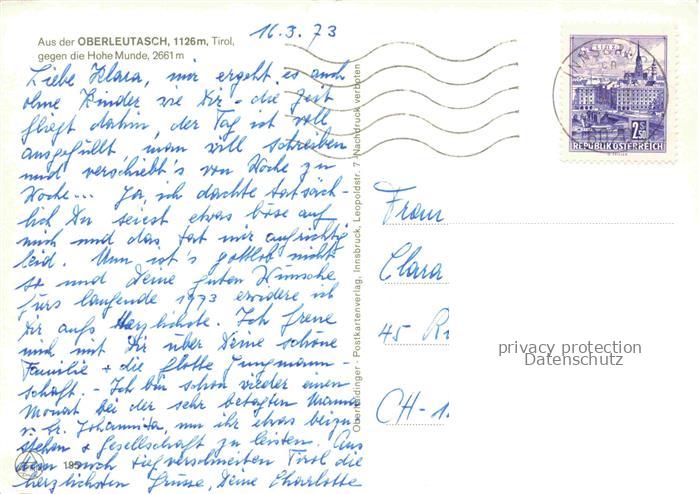 16.3.73
Aus der OBERLEUTASCH, 1126m, Tirol,
gegen die Hohe Munde, 2661 m
Liebe Klara, mir ergeht es auch
ohne Kinder wie Dir - die Zeit
fliegt dahin, der Tag ist voll
ausgefüllt man will schreiben
und verschiebt's von Woche zu
Woche... Ja, ich dachte tatsäch-
lich Du seiest etwas böse auf
mich und das tat mir aufrichtig
leid. Nun ist's gottlob nicht
so und Deine guten Wünsche
fürs laufende 1973 erwidere ich
Dir aufs Herzlichste. Ich freue
mich mit Dir über Deine schöne
Familie + die flotte Jungmann-
schaft. - Ich bin schon wieder einen
Monat bei der sehr betagten Mamma
v. Sr. Johannita, um ihr etwas beizu-
stehen + Gesellschaft zu leisten. Aus
dem noch tiefverschneiten Tirol die
herzlichsten Grüsse, Deine Charlotte
185
Postkartenverlag, Innsbruck, Leopoldstr. 7 - Nachdruck verboten
INNSBRUCK
LINZ
2.50
REPUBLIK ÖSTERREICH
Frau
Clara
45
CH-
privacy protection
Datenschutz